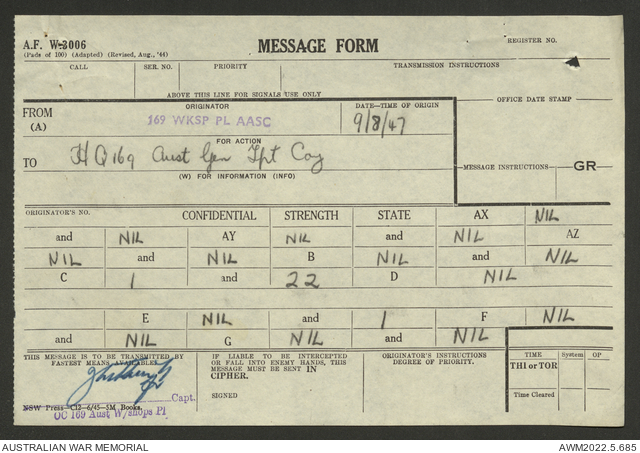 A.F. W-3006
(Pads of 100) (Adapted) (Revised, Aug., '44)
MESSAGE FORM
REGISTER NO.
CALL
SER. NO.
PRIORITY
TRANSMISSION INSTRUCTIONS
ABOVE THIS LINE FOR SIGNALS USE ONLY
FROM
(A)
ORIGINATOR
169 WKSP PL AASC
DATE-TIME OF ORIGIN
9/8/47
OFFICE DATE STAMP
FOR ACTION
TO
HQ 169 Aust Gen Tpt Coy
(W) FOR INFORMATION (INFO)
MESSAGE INSTRUCTIONS
GR
ORIGINATOR'S NO. CONFIDENTIAL STRENGTH STATE AX NIL
and NIL AY NIL and NIL AZ
NIL and NIL B NIL and NIL
C 1 and 22 D NIL
E NIL and 1 F NIL
and NIL G NIL and NIL
THIS MESSAGE IS TO BE TRANSMITTED BY
FASTEST MEANS AVAILABLE.
Capt.
NSW Press—C12—6/45—5M Books.
OC 169 Aust W/shops Pl
IF LIABLE TO BE INTERCEPTED
OR FALL INTO ENEMY HANDS, THIS
MESSAGE MUST BE SENT IN
CIPHER.
SIGNED
ORIGINATOR'S INSTRUCTIONS
DEGREE OF PRIORITY.
TIME
System
OP
THI or TOR
Time Cleared
AUSTRALIAN WAR MEMORIAL
AWM2022.5.685